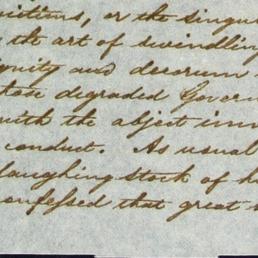 or the singu
the art of swindling
gnity and decorum
degraded Govern
with the abject imm
conduct. As usual
laughing stock of h
onfessed that great